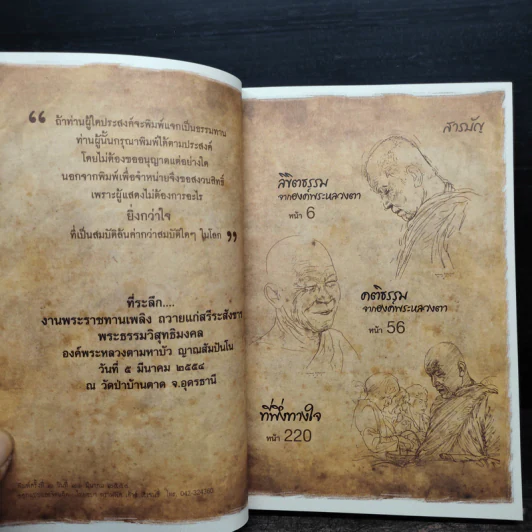 “ ถ้าท่านผู้ใดประสงค์จะพิมพ์แจกเป็นธรรมทาน
ท่านผู้นั้นกรุณาพิมพ์ได้ตามประสงค์
โดยไม่ต้องขออนุญาตแต่อย่างใด
นอกจากพิมพ์เพื่อจำหน่ายจึงขอสงวนสิทธิ์
เพราะผู้แสดงไม่ต้องการอะไร
ยิ่งกว่าใจ
ที่เป็นสมบัติล้นค่ากว่าสมบัติใดๆ ในโลก ”
ที่ระลึก....
งานพระราชทานเพลิง ถวายแก่สรีระสังขาร
พระธรรมวิสุทธิมงคล
องค์พระหลวงตามหาบัว ญาณสัมปันโน
วันที่ ๕ มีนาคม ๒๕๕๔
ณ วัดป่าบ้านตาด จ.อุดรธานี
โทร. 043-224700
สารบัญ
ลิขิตธรรม
จากองค์พระหลวงตา
หน้า 6
คติธรรม
จากองค์พระหลวงตา
หน้า 56
ที่พึ่งทางใจ
หน้า 220